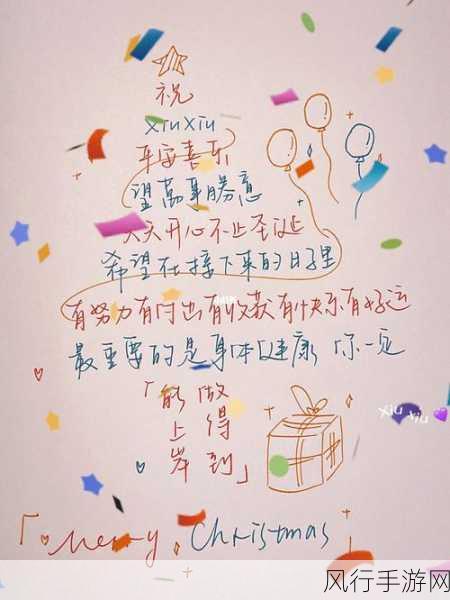 祝
xiuxiu
平安喜乐
望万事胜意
天天开心不止圣诞
希望在接下来的日子里
有努力有付出有收获有快乐有好运
最重要的是身体健康 你一定
「能做
上得
岸到」
xiu xiu
「Merry Christmas
风行手游网